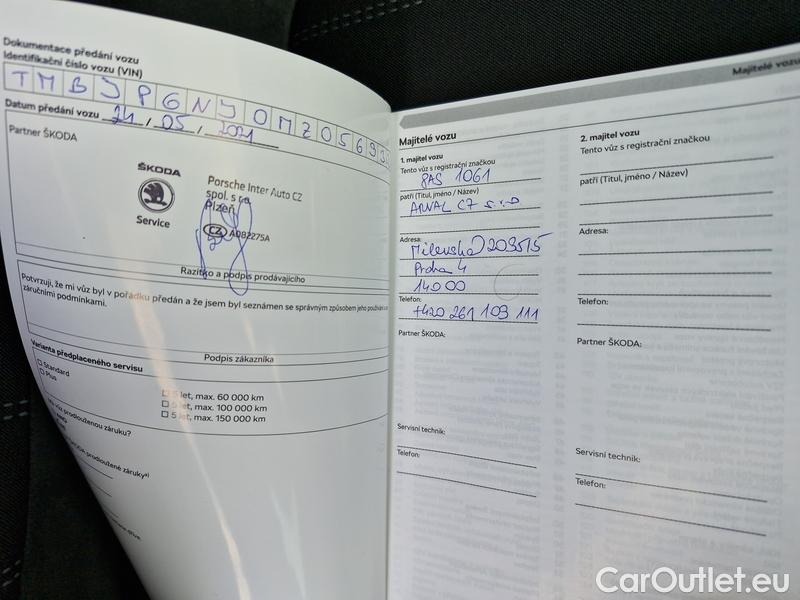 Dokumentace předání vozu
Identifikační číslo vozu (VIN)
TMBJP6NJ0MZ05693
Datum předání vozu 21 / 05 / 2021
Partner ŠKODA
ŠKODA
Service
Porsche Inter Auto CZ
spol. s r.o.
Plzeň
CZ A082275A
Razítko a podpis prodávajícího
Potvrzuji, že mi vůz byl v pořádku předán a že jsem byl seznámen se správným způsobem jeho používání
záručními podmínkami.
Podpis zákazníka
Varianta předplaceného servisu
Standard
Plus
5 let, max. 60 000 km
5 let, max. 100 000 km
5 let, max. 150 000 km
vůz prodlouženou záruku?
prodloužené záruky
Majitelé vozu
Majitelé vozu
1. majitel vozu
Tento vůz s registrační značkou
8AS 1061
patří (Titul, jméno / Název)
ARVAL CZ s.r.o
Adresa:
Milevská 2095/5
Praha 4
140 00
Telefon:
+420 261 109 111
Partner ŠKODA:
Servisní technik:
Telefon:
2. majitel vozu
Tento vůz s registrační značkou
patří (Titul, jméno / Název)
Adresa:
Telefon:
Partner ŠKODA:
Servisní technik:
Telefon:
CarOutlet.eu